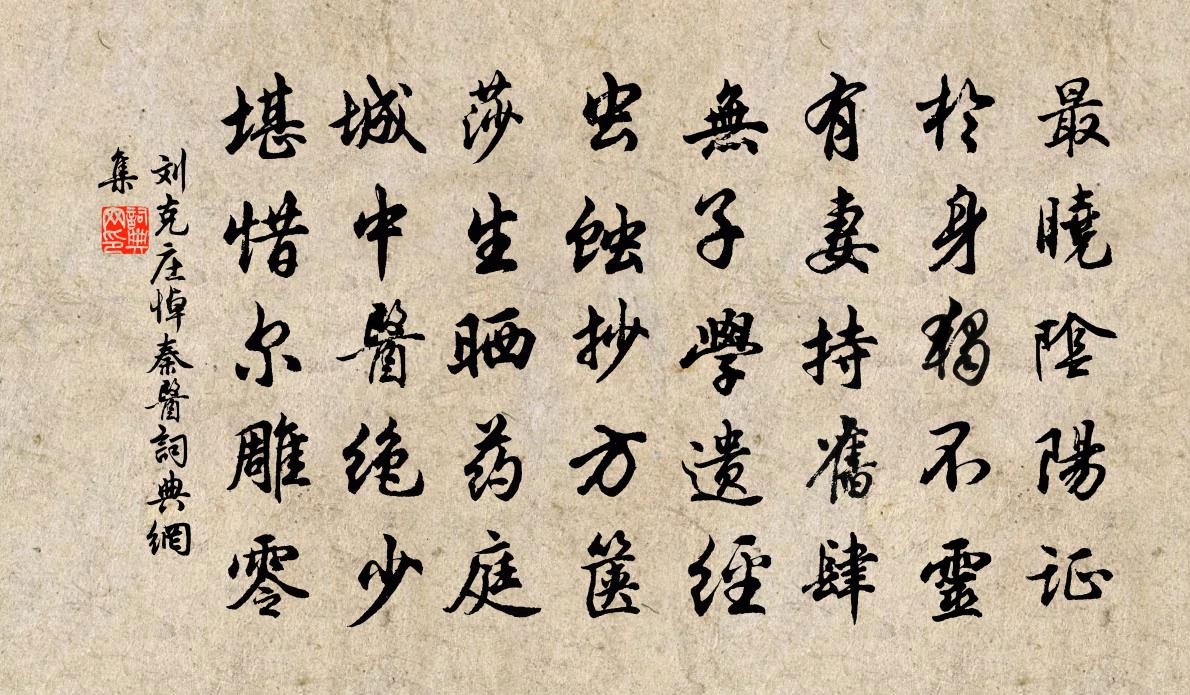 最曉陰陽证
於身獨不靈
有妻持舊肆
無子學遗經
虫蝕抄方箧
莎生晒药庭
城中醫绝少
堪惜尔雕零
刘克庄悼秦醫詞典網
集
詞典網印